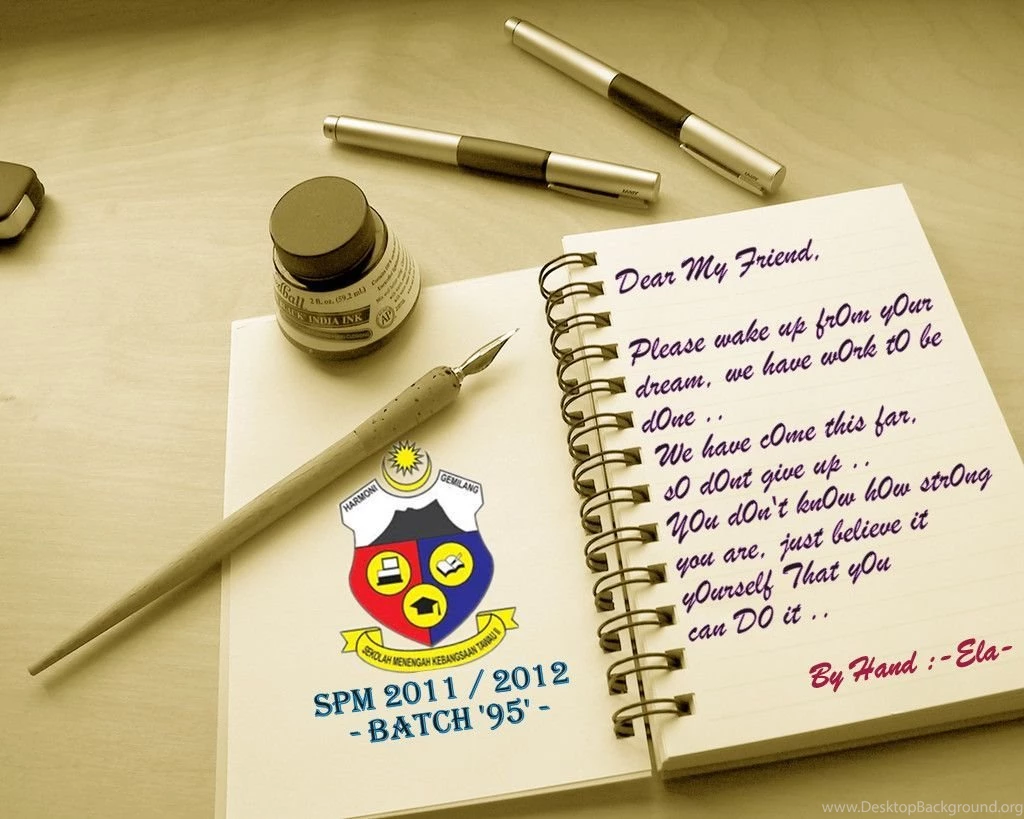 2 fl. oz. (59.2 mL)
INDIA INK
AP
HARMONI
GEMILANG
SEKOLAH MENENGAH KEBANGSAAN TAWAU II
SPM 2011 / 2012
- BATCH '95' -
Dear My Friend,
Please wake up frOm yOur
dream, we have wOrk tO be
dOne ..
We have cOme this far,
sO dOnt give up ..
YOu dOn't knOw hOw strOng
you are, just believe it
yOurself That yOu
can DO it ..
By Hand :-Ela-
www.DesktopBackground.org